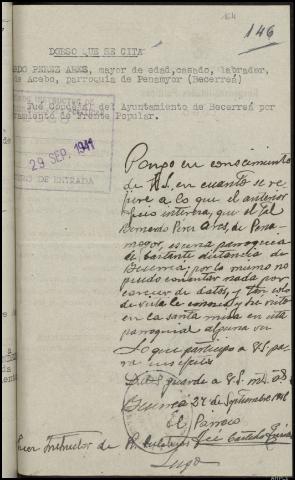 164
146
DORSO QUE SE CITA
DO PEREZ ARES, mayor de edad, casado, labrador,
de Acebo, parroquia de Penamayor (Becerreá)
Fué Concejal del Ayuntamiento de Becerreá por
amiento de Frente Popular.
29 SEP. 1941
RO DE ENTRADA
Pongo en conocimiento
de V.S. en cuanto se re-
fiere a lo que el anterior
oficio interesa, que el tal
Bernardo Pérez Ares, de Pena-
mayor, es una parroquia
de bastante distancia de
Becerreá; por lo mismo no
puedo comentar nada por
carecer de datos, y tan solo
de vista le conozco, he visto
en la santa misa en esta
parroquial alguna vez
Lo que participo a V.S. pa-
ra
Dios guarde a V.S. ms. as.
Becerreá 27 de Septiembre 1941
El Párroco
José
Señor Instructor de
Lugo